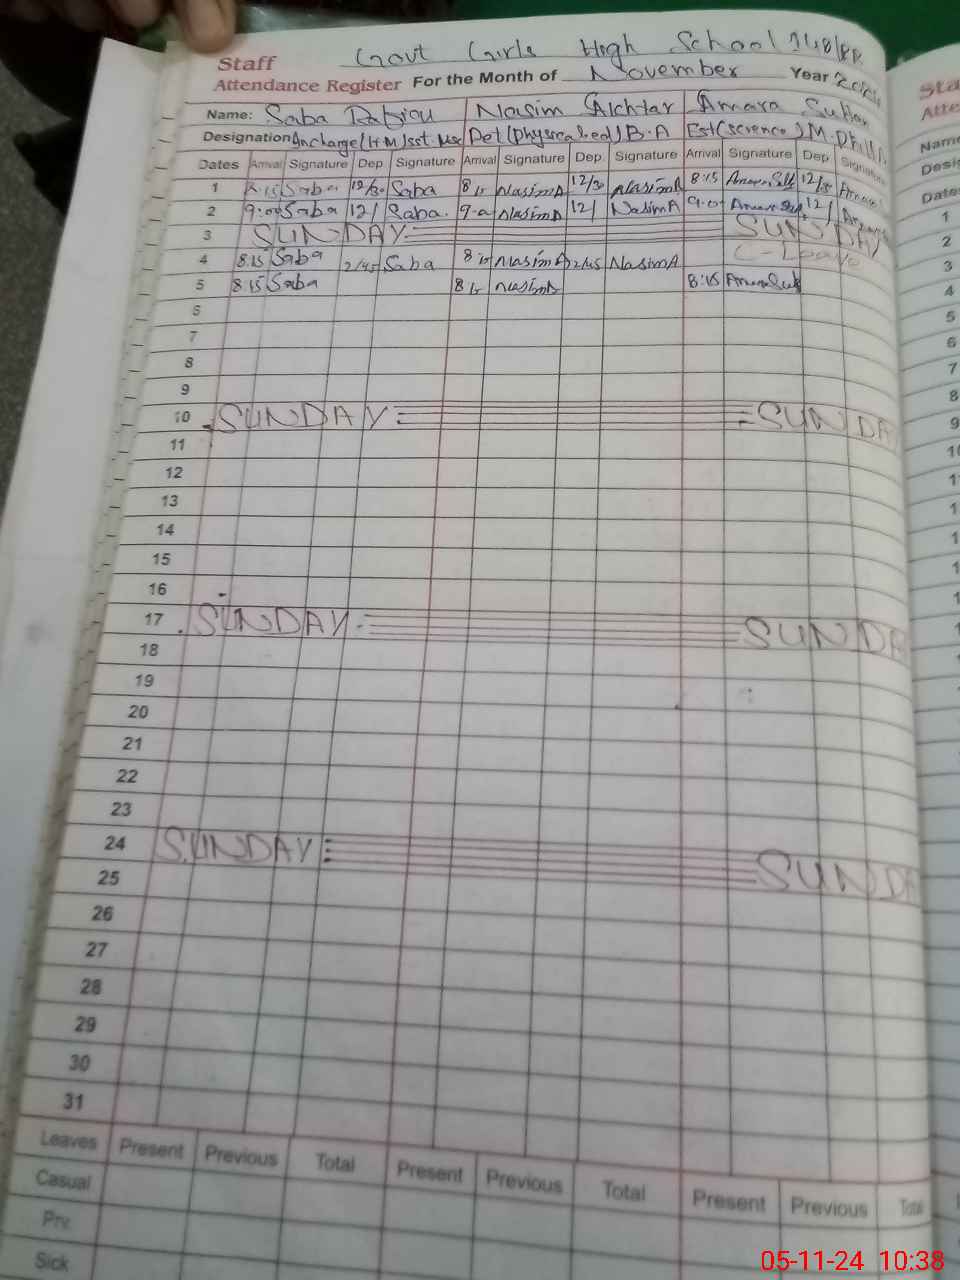 Staff Govt Girls High School 148/
Attendance Register For the Month of November Year 2024
Name: Saba Nasim Akhtar Amara Sultan
Designation Incharge/HM/ Pet(physical ed)B.A Est(science) M.Phil
Dates Arrival Signature Dep Signature Arrival Signature Dep. Signature Arrival Signature Dep Signature
1 8:15 Saba 12/30 Saba 8 15 NasimA 12/30 NasimA 8:15 12/30
2 9:00 Saba 12/ Saba. 9-0 NasimA 12/ NasimA 9:0 12/
3 SUNDAY SUNDAY
4 8:15 Saba 2/45 Saba 8 15 NasimA 2/45 NasimA C-Leave
5 8:15 Saba 8 15 NasimA 8:15
6
7
8
9
10 SUNDAY SUNDA
11
12
13
14
15
16
17 SUNDAY SUNDA
18
19
20
21
22
23
24 SUNDAY SUNDA
25
26
27
28
29
30
31
Leaves Present Previous Total Present Previous Total Present Previous Total
Casual
Prv.
Sick
Sta
Atte
Name
Desi
Date
1
2
3
4
5
6
7
8
9
05-11-24 10:38